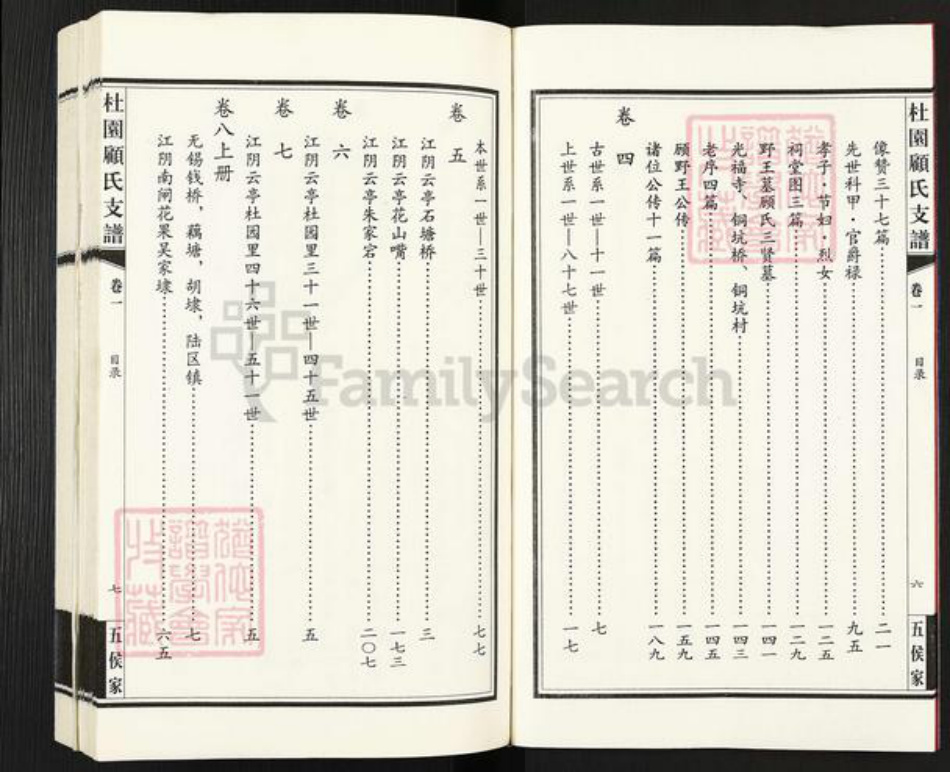 杜園顧氏支譜
卷一
目录
六
五侯家
像赞三十七篇 二一
先世科甲·官爵禄 九五
孝子·节妇·烈女 一二五
祠堂图三篇 一二九
野王墓顾氏三贤墓 一四一
光福寺、铜坑桥、铜坑村 一四三
老序四篇 一四五
顾野王公传 一五九
诸位公传十一篇 一八九
卷四
古世系一世—十一世 七
上世系一世—八十七世 一七
本世系一世—三十世 七七
卷五
江阴云亭石塘桥 三
江阴云亭花山嘴 一七三
江阴云亭朱家宕 二〇七
卷六
江阴云亭杜园里三十一世—四十五世 五
卷七
江阴云亭杜园里四十六世—五十一世 五
卷八上册
无锡钱桥，藕塘，胡埭，陆区镇 七
江阴南闸花果吴家埭 六五
杜園顧氏支譜
卷一
目录
七
五侯家
FamilySearch